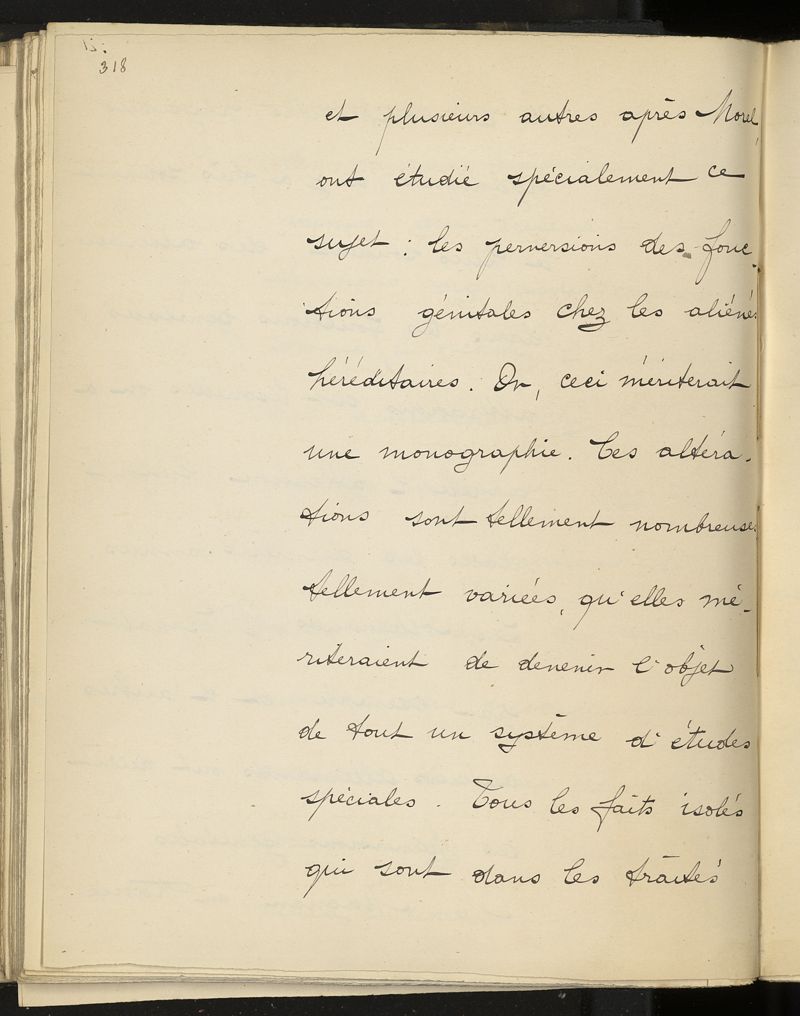 318
et plusieurs autres après Morel,
ont étudié spécialement ce
sujet : les perversions des fonc-
tions génitales chez les aliénés
héréditaires. Or, ceci mériterait
une monographie. Ces altéra-
tions sont tellement nombreuses
tellement variées, qu'elles mé-
riteraient de devenir l'objet
de tout un système d'études
spéciales. Tous les faits isolés
qui sont dans les traités